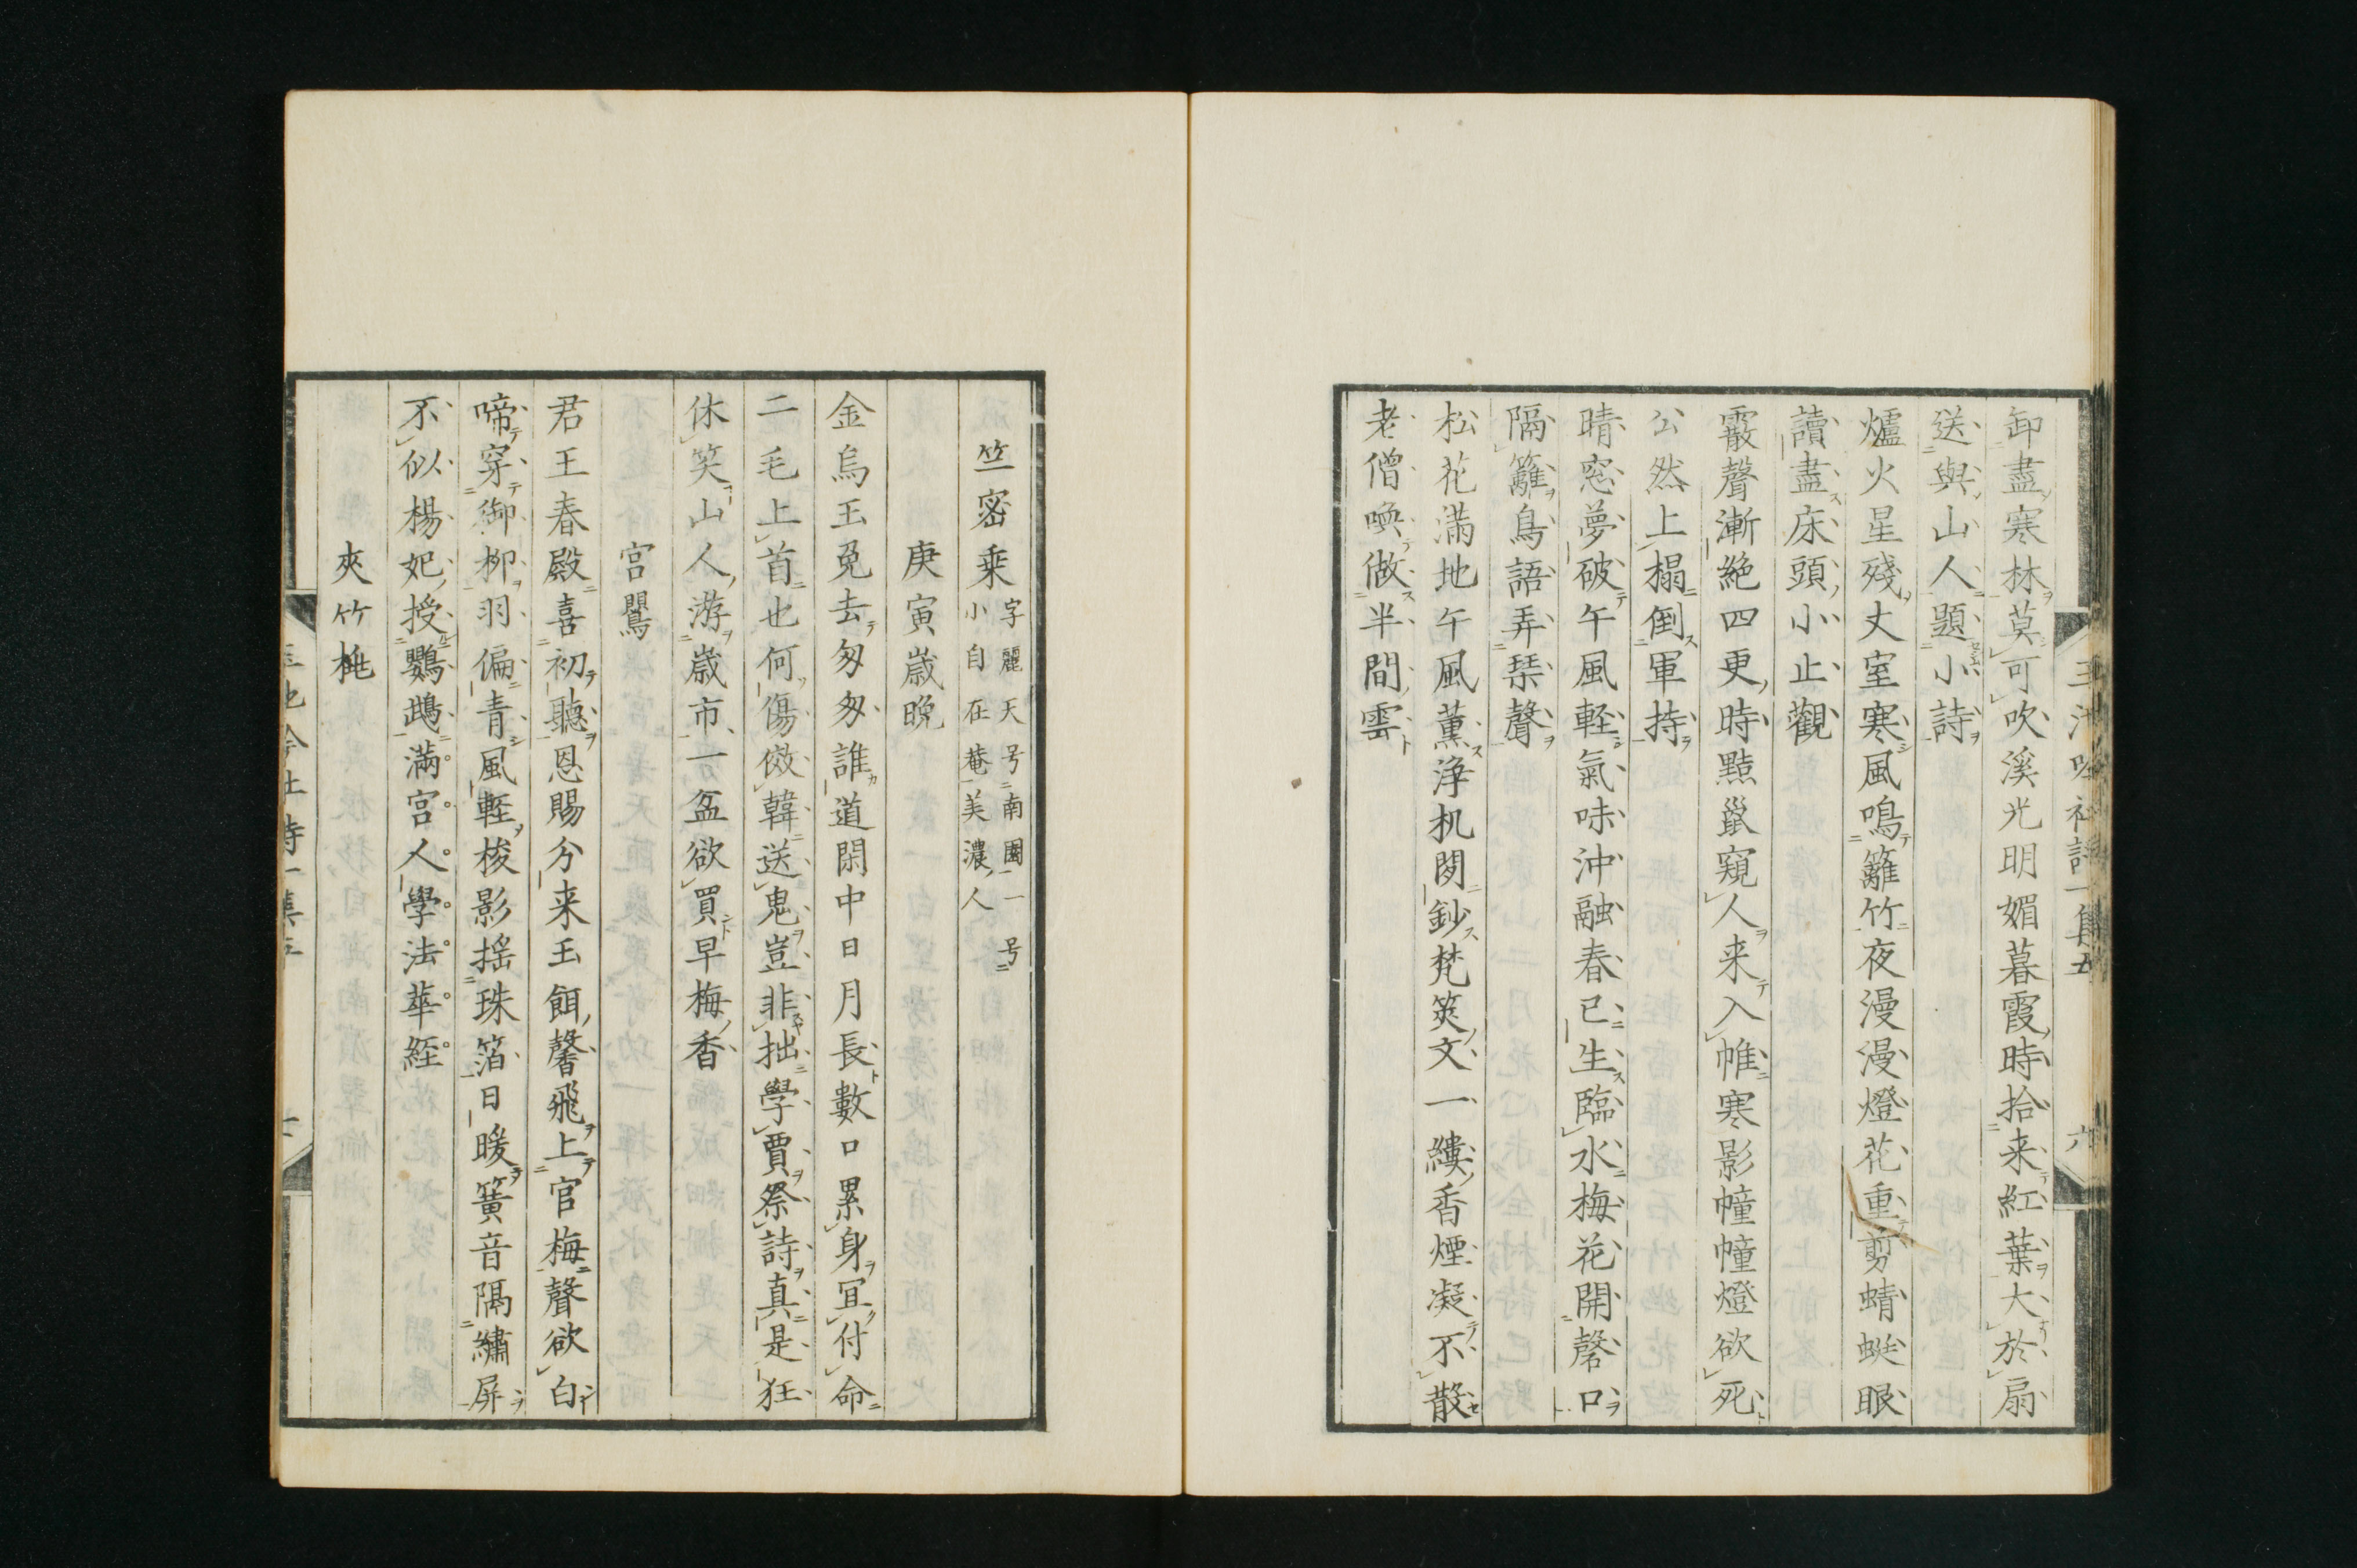 卸盡寒林莫可吹溪光明媚暮霞時拾来紅葉大於扇
送與山人題小詩
爐火星殘丈室寒風鳴籬竹夜漫漫燈花重剪蜻蜒眼
讀盡床頭小止觀
霰聲漸絶四更時點鼠窺人来入帷寒影幢幢燈欲死
公然上榻倒軍持
晴窓夢破午風軽氣味沖融春已生臨水梅花開磬口
隔籬鳥語弄琹聲
松花滿地午風薫浄机閑鈔梵筴文一縷香煙凝不散
老僧喚做半間雲
竺密乗
字麗天号南園一号
小自在菴美濃人
庚寅歳晩
金烏玉兎去匆匆誰道閑中日月長數口累身冝付命
二毛上首也何傷傚韓送鬼豈非拙學賈祭詩真是狂
休笑山人游歳市一分盆欲買早梅香
宮鸎
君王春殿喜初聽恩賜分来玉餌馨飛上官梅聲欲白
啼穿御柳羽偏青風軽梭影揺珠箔日暖簧音隔繡屏
不似楊妃授鸚鵡滿宮人學法華経
夾竹桃